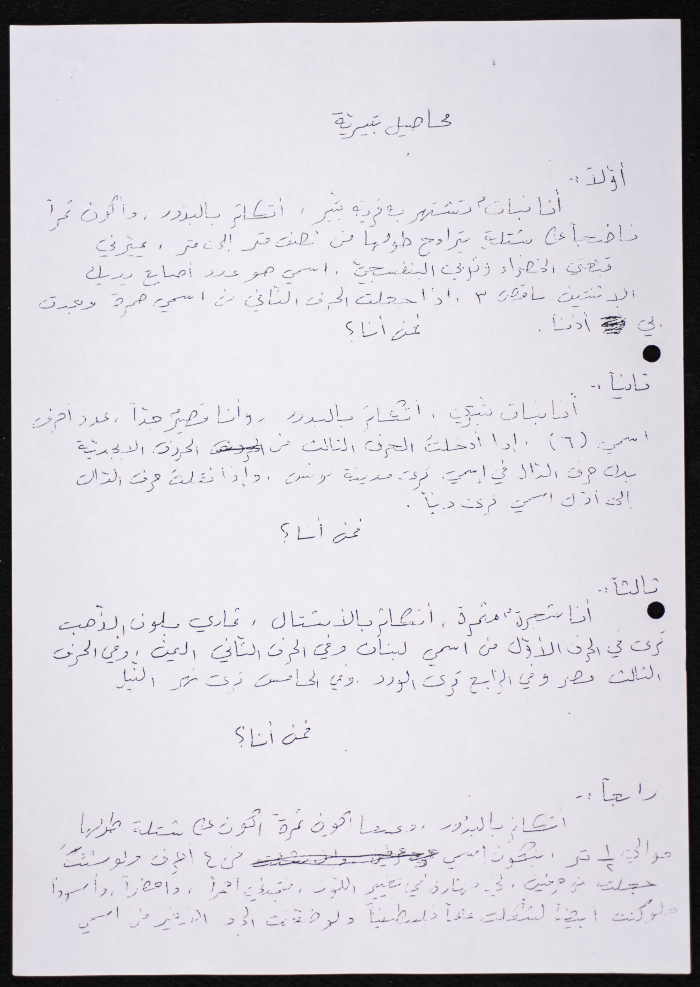 محاصيل بتيرية
أوّلاً :-
أنا نبات تشتهر به قرية بتير ، أتكاثر بالبذور ، وأكون ثمراً
ناضجاً على شتلة يتراوح طولها من نصف متر إلى متر ، يميزني
قبعتي الخضراء وثوبي البنفسجي ، اسمي هو عدد أصابع يديك
الاثنتين ناقص ٣ . إذا جعلت الحرف الثاني من اسمي همزة
بي أذناً . فمن أنا ؟
ثانياً :-
أنا نبات شوكي ، أتكاثر بالبذور ، وأنا قصيرٌ جداً ، عدد أحرف
اسمي (٦) . إذا أدخلت الحرف الثالث من الحروف الابجدية
بدل حرف الدال في اسمي ترى مدينة تونس . وإذا نقلت حرف الدال
إلى أوّل اسمي ترى دباً .
فمن أنا ؟
ثالثاً :-
أنا شجرة مثمرة ، أتكاثر بالأشتال ، ثماري بلون الذهب
ترى في الحرف الأوّل من اسمي لبنان وفي الحرف الثاني اليمن ، وفي الحرف
الثالث مصر وفي الرابع ترى الورد . وفي الخامس ترى نهر النيل
فمن أنا ؟
رابعاً :-
أتكاثر بالبذور ، وعندما أكون ثمرة أكون على شتلة طولها
حوالي ١/٢ متر ، يتكون اسمي من ٤ أحرف ولو شئتَ
جعلته من حرفين ، لي مهارة في تغيير اللون ، أحمراً ، وأخضراً ، وأسوداً
فلو كنت أبيضاً لشكلت علماً فلسطينياً ولو حذفت الجزء الأخير من اسمي